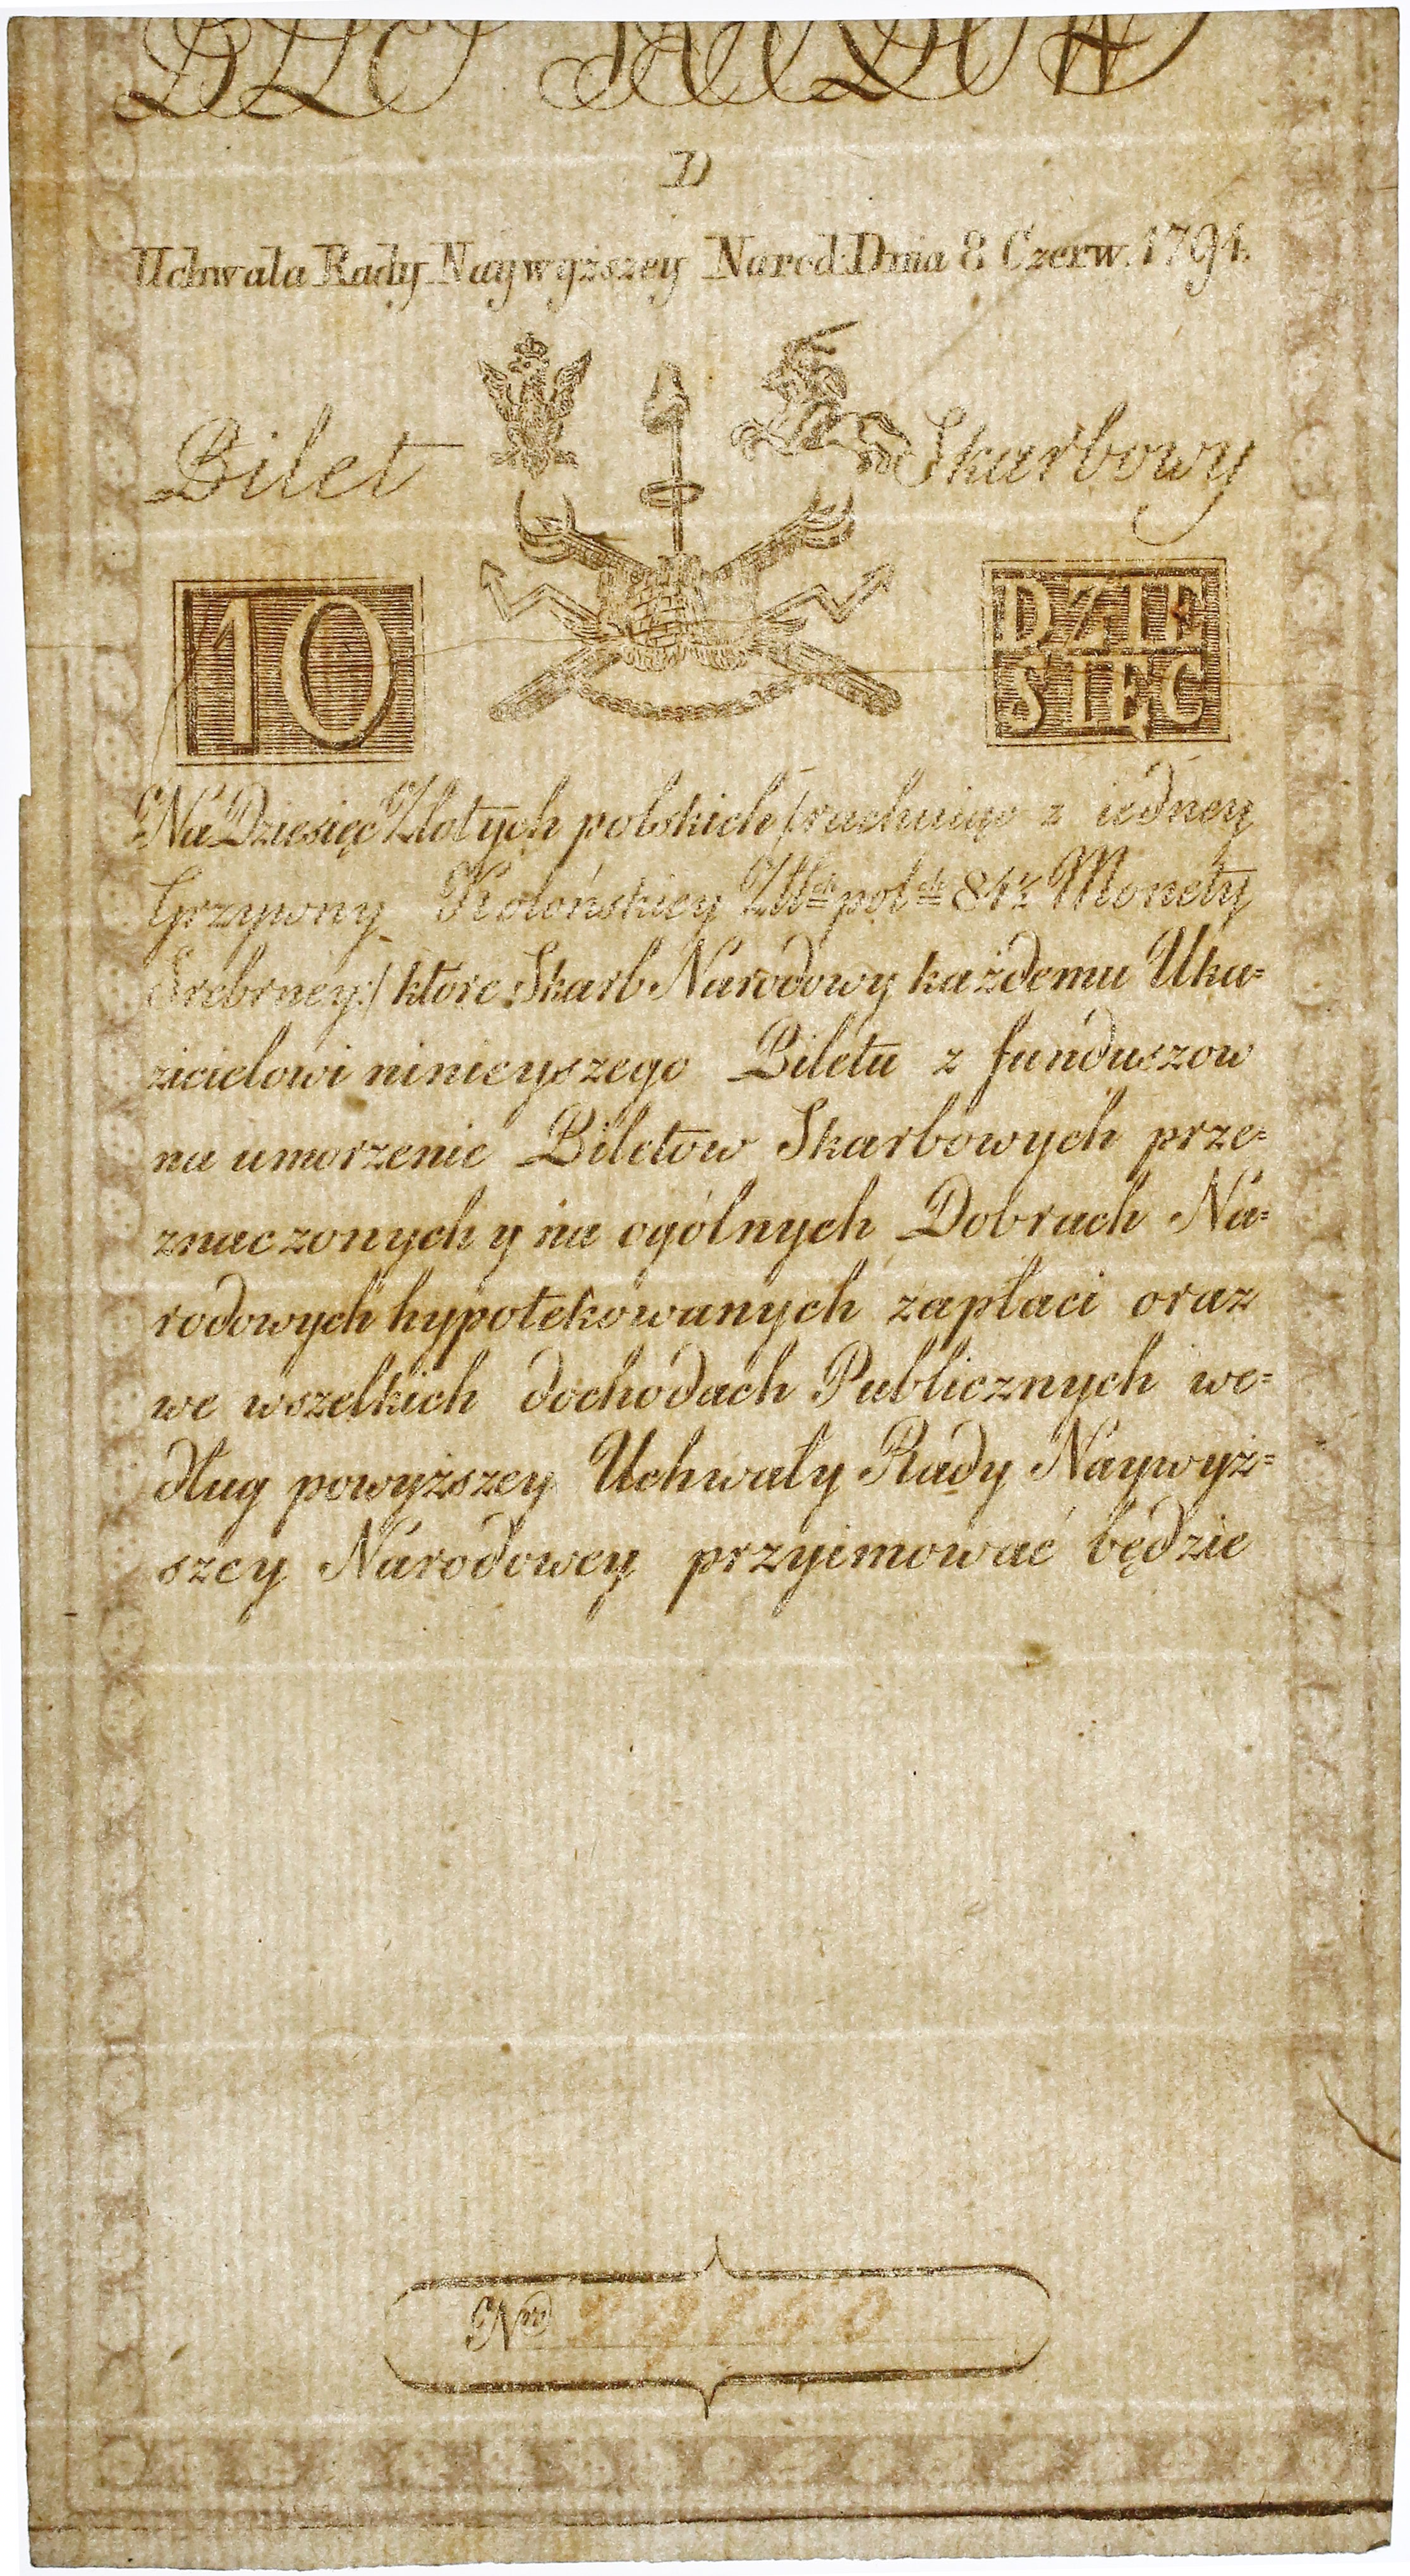 D
Uchwala Rady Naywyższey Narod: Dnia 8 Czerw. 1794.
Bilet Skarbowy
10 DZIE
SIĘC
Na Dziesięc Złotych polskich /:rachuiąc z iedney
Grzywny Kolońskiey Złł:ch pol:ch 84½ Monety
Srebrney:/ ktore Skarb Narodowy każdemu Uka=
zicielowi ninieyszego Biletu z funduszow
na umorzenie Biletow Skarbowych prze=
znaczonych y na ogólnych Dobrach Na=
rodowych hypotekowanych zapłaci oraz
we wszelkich dochodach Publicznych we=
dług powyższey Uchwały Rady Naywyż=
szey Narodowey przyimować będzie
Nro